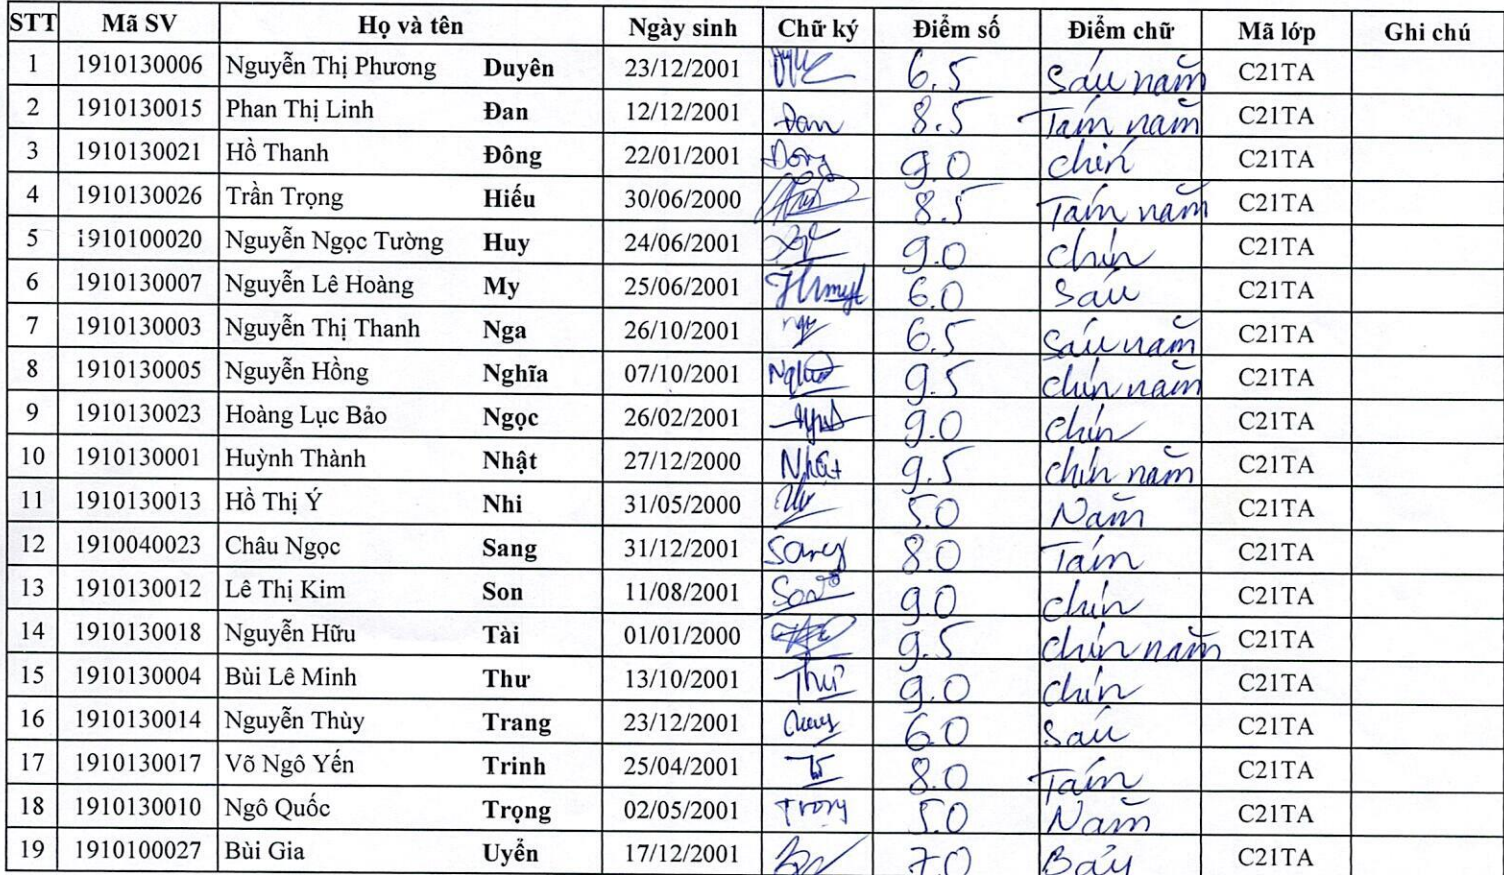 STT Mã SV Họ và tên Ngày sinh Chữ ký Điểm số Điểm chữ Mã lớp Ghi chú
1 1910130006 Nguyễn Thị Phương Duyên 23/12/2001 6.5 Sáu năm C21TA
2 1910130015 Phan Thị Linh Đan 12/12/2001 Đan 8.5 Tám năm C21TA
3 1910130021 Hồ Thanh Đông 22/01/2001 Đông 9.0 chín C21TA
4 1910130026 Trần Trọng Hiếu 30/06/2000 8.5 Tám năm C21TA
5 1910100020 Nguyễn Ngọc Tường Huy 24/06/2001 9.0 chín C21TA
6 1910130007 Nguyễn Lê Hoàng My 25/06/2001 6.0 Sáu C21TA
7 1910130003 Nguyễn Thị Thanh Nga 26/10/2001 6.5 Sáu năm C21TA
8 1910130005 Nguyễn Hồng Nghĩa 07/10/2001 9.5 chín năm C21TA
9 1910130023 Hoàng Lục Bảo Ngọc 26/02/2001 9.0 chín C21TA
10 1910130001 Huỳnh Thành Nhật 27/12/2000 Nhật 9.5 chín năm C21TA
11 1910130013 Hồ Thị Ý Nhi 31/05/2000 5.0 Năm C21TA
12 1910040023 Châu Ngọc Sang 31/12/2001 Sang 8.0 Tám C21TA
13 1910130012 Lê Thị Kim Son 11/08/2001 Son 9.0 chín C21TA
14 1910130018 Nguyễn Hữu Tài 01/01/2000 9.5 chín năm C21TA
15 1910130004 Bùi Lê Minh Thư 13/10/2001 Thư 9.0 chín C21TA
16 1910130014 Nguyễn Thùy Trang 23/12/2001 6.0 Sáu C21TA
17 1910130017 Võ Ngô Yến Trinh 25/04/2001 8.0 Tám C21TA
18 1910130010 Ngô Quốc Trọng 02/05/2001 Trọng 5.0 Năm C21TA
19 1910100027 Bùi Gia Uyển 17/12/2001 7.0 Bảy C21TA